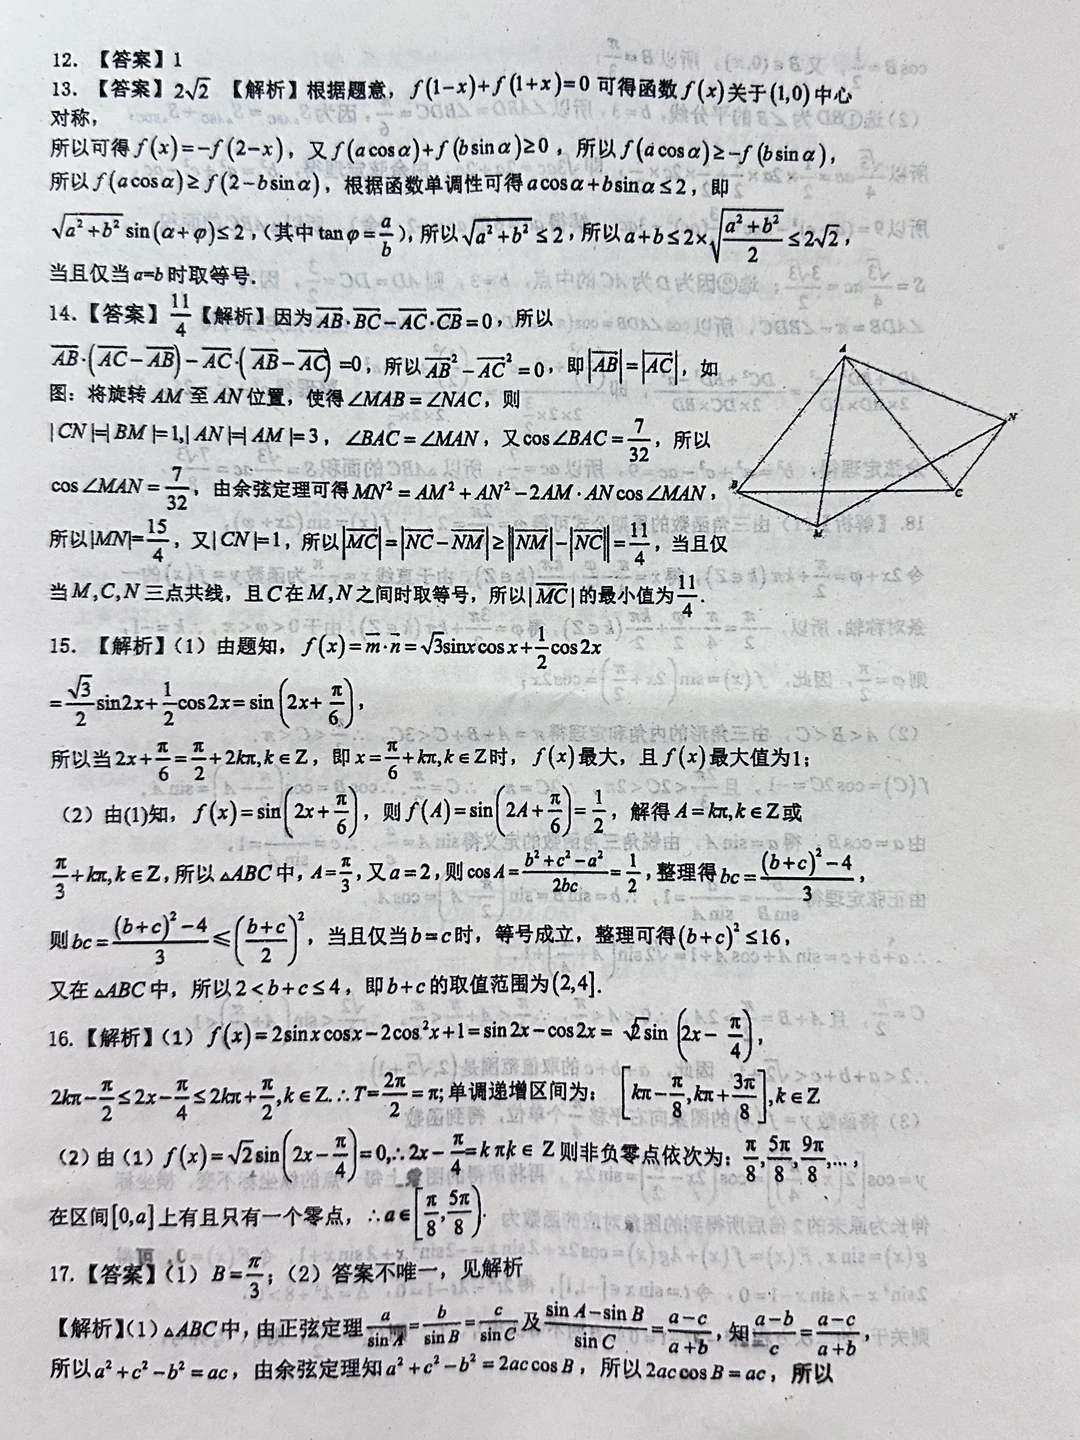 12. 【答案】1
13. 【答案】2√2 【解析】根据题意，f(1−x)+f(1+x)=0 可得函数 f(x)关于(1,0)中心
对称，
所以可得 f(x)=−f(2−x)，又 f(acosα)+f(bsinα)≥0，所以 f(acosα)≥−f(bsinα)，
所以 f(acosα)≥f(2−bsinα)，根据函数单调性可得 acosα+bsinα≤2，即
√(a²+b²) sin(α+φ)≤2，(其中 tanφ=a/b)，所以 √(a²+b²)≤2，所以 a+b≤2×√((a²+b²)/2)≤2√2，
当且仅当 a=b 时取等号.
14.【答案】11/4【解析】因为 AB·BC−AC·CB=0，所以
AB·(AC−AB)−AC·(AB−AC)=0，所以 AB²−AC²=0，即|AB|=|AC|，如
图：将旋转 AM 至 AN 位置，使得∠MAB=∠NAC，则
|CN|=|BM|=1,|AN|=|AM|=3，∠BAC=∠MAN，又 cos∠BAC=7/32，所以
cos∠MAN=7/32，由余弦定理可得 MN²=AM²+AN²−2AM·ANcos∠MAN，
所以|MN|=15/4，又|CN|=1，所以|MC|=|NC−NM|≥||NM|−|NC||=11/4，当且仅
当 M,C,N 三点共线，且 C 在 M,N 之间时取等号，所以|MC|的最小值为11/4.
A
N
B
C
M
15. 【解析】（1）由题知，f(x)=m·n=√3sinxcosx+1/2cos2x
=√3/2 sin2x+1/2 cos2x=sin(2x+π/6)，
所以当 2x+π/6=π/2+2kπ,k∈Z，即 x=π/6+kπ,k∈Z 时，f(x)最大，且 f(x)最大值为1;
（2）由(1)知，f(x)=sin(2x+π/6)，则 f(A)=sin(2A+π/6)=1/2，解得 A=kπ,k∈Z 或
π/3+kπ,k∈Z，所以 △ABC 中，A=π/3，又 a=2，则 cosA=(b²+c²−a²)/2bc=1/2，整理得 bc=((b+c)²−4)/3，
则 bc=((b+c)²−4)/3≤((b+c)/2)²，当且仅当 b=c 时，等号成立，整理可得(b+c)²≤16，
又在 △ABC 中，所以 2<b+c≤4，即 b+c 的取值范围为(2,4].
16.【解析】（1）f(x)=2sinxcosx−2cos²x+1=sin2x−cos2x=√2sin(2x−π/4)，
2kπ−π/2≤2x−π/4≤2kπ+π/2,k∈Z.∴T=2π/2=π; 单调递增区间为：[kπ−π/8,kπ+3π/8],k∈Z
（2）由（1）f(x)=√2sin(2x−π/4)=0,∴2x−π/4=kπk∈Z 则非负零点依次为：π/8,5π/8,9π/8,...,
在区间[0,a]上有且只有一个零点，∴a∈[π/8,5π/8).
17.【答案】（1）B=π/3;（2）答案不唯一，见解析
【解析】（1）△ABC 中，由正弦定理 a/sinA=b/sinB=c/sinC 及 (sinA−sinB)/sinC=(a−c)/(a+b)，知 (a−b)/c=(a−c)/(a+b)，
所以 a²+c²−b²=ac，由余弦定理知 a²+c²−b²=2accosB，所以 2accosB=ac，所以